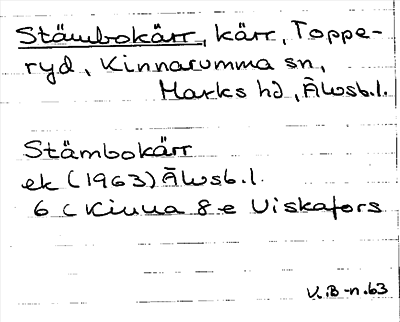 Stämbokärr, kärr, Toppe-
ryd, Kinnarumma sn,
Marks hd, Älvsb.l.
Stämbokärr
ek (1963) Älvsb.l.
6 C Kinna 8 e Viskafors
V.B-n.63